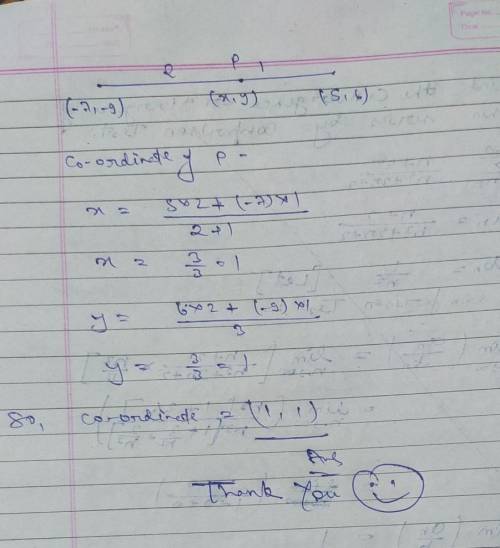 2 P 1
(-7,-9) (x,y) (5,6)
Co-ordinate of P -
x = 5×2 + (-7)×1 / 2+1
x = 3/3 = 1
y = 6×2 + (-9)×1 / 3
y = 3/3 = 1
So, co-ordinate = (1, 1)
Ans
Thank You